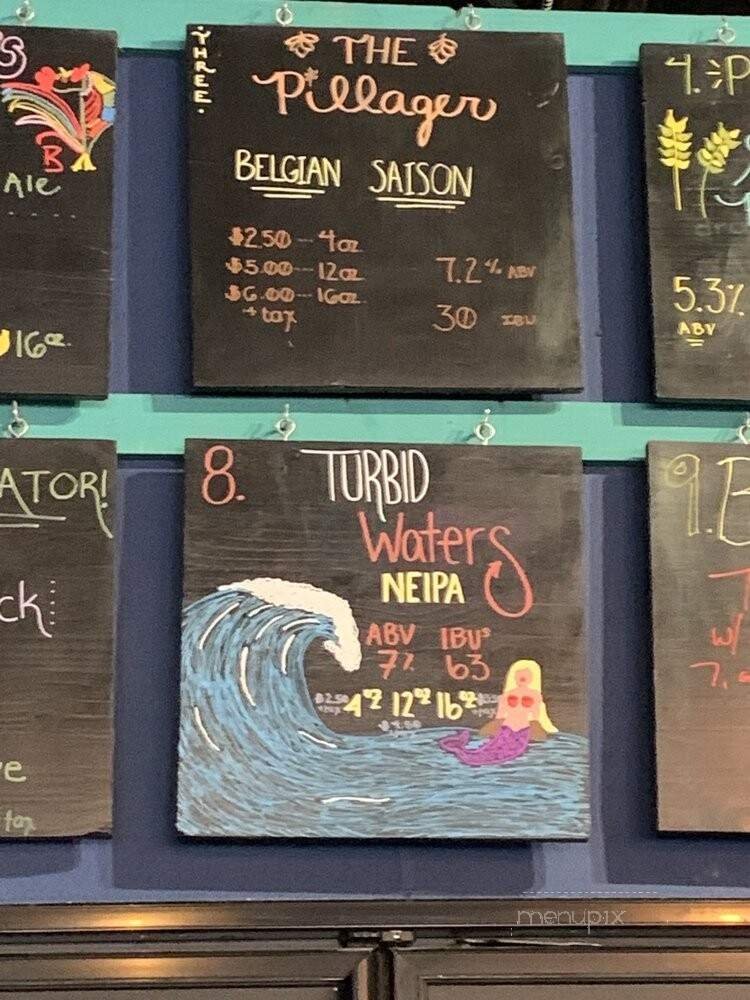 S
B
Ale
16 oz.
THREE.
THE
Pillager
BELGIAN SAISON
$2.50 -- 4oz
$5.00 -- 12oz
$6.00 -- 16oz.
+ tax
7.2% ABV
30 IBU
4. P
5.3%
ABV
ATOR!
ck
e
tax
8. TURBID
Waters
NEIPA
ABV IBUs
7% 63
$2.50 4oz 12oz 16oz
9. E
w/
7.
menupix